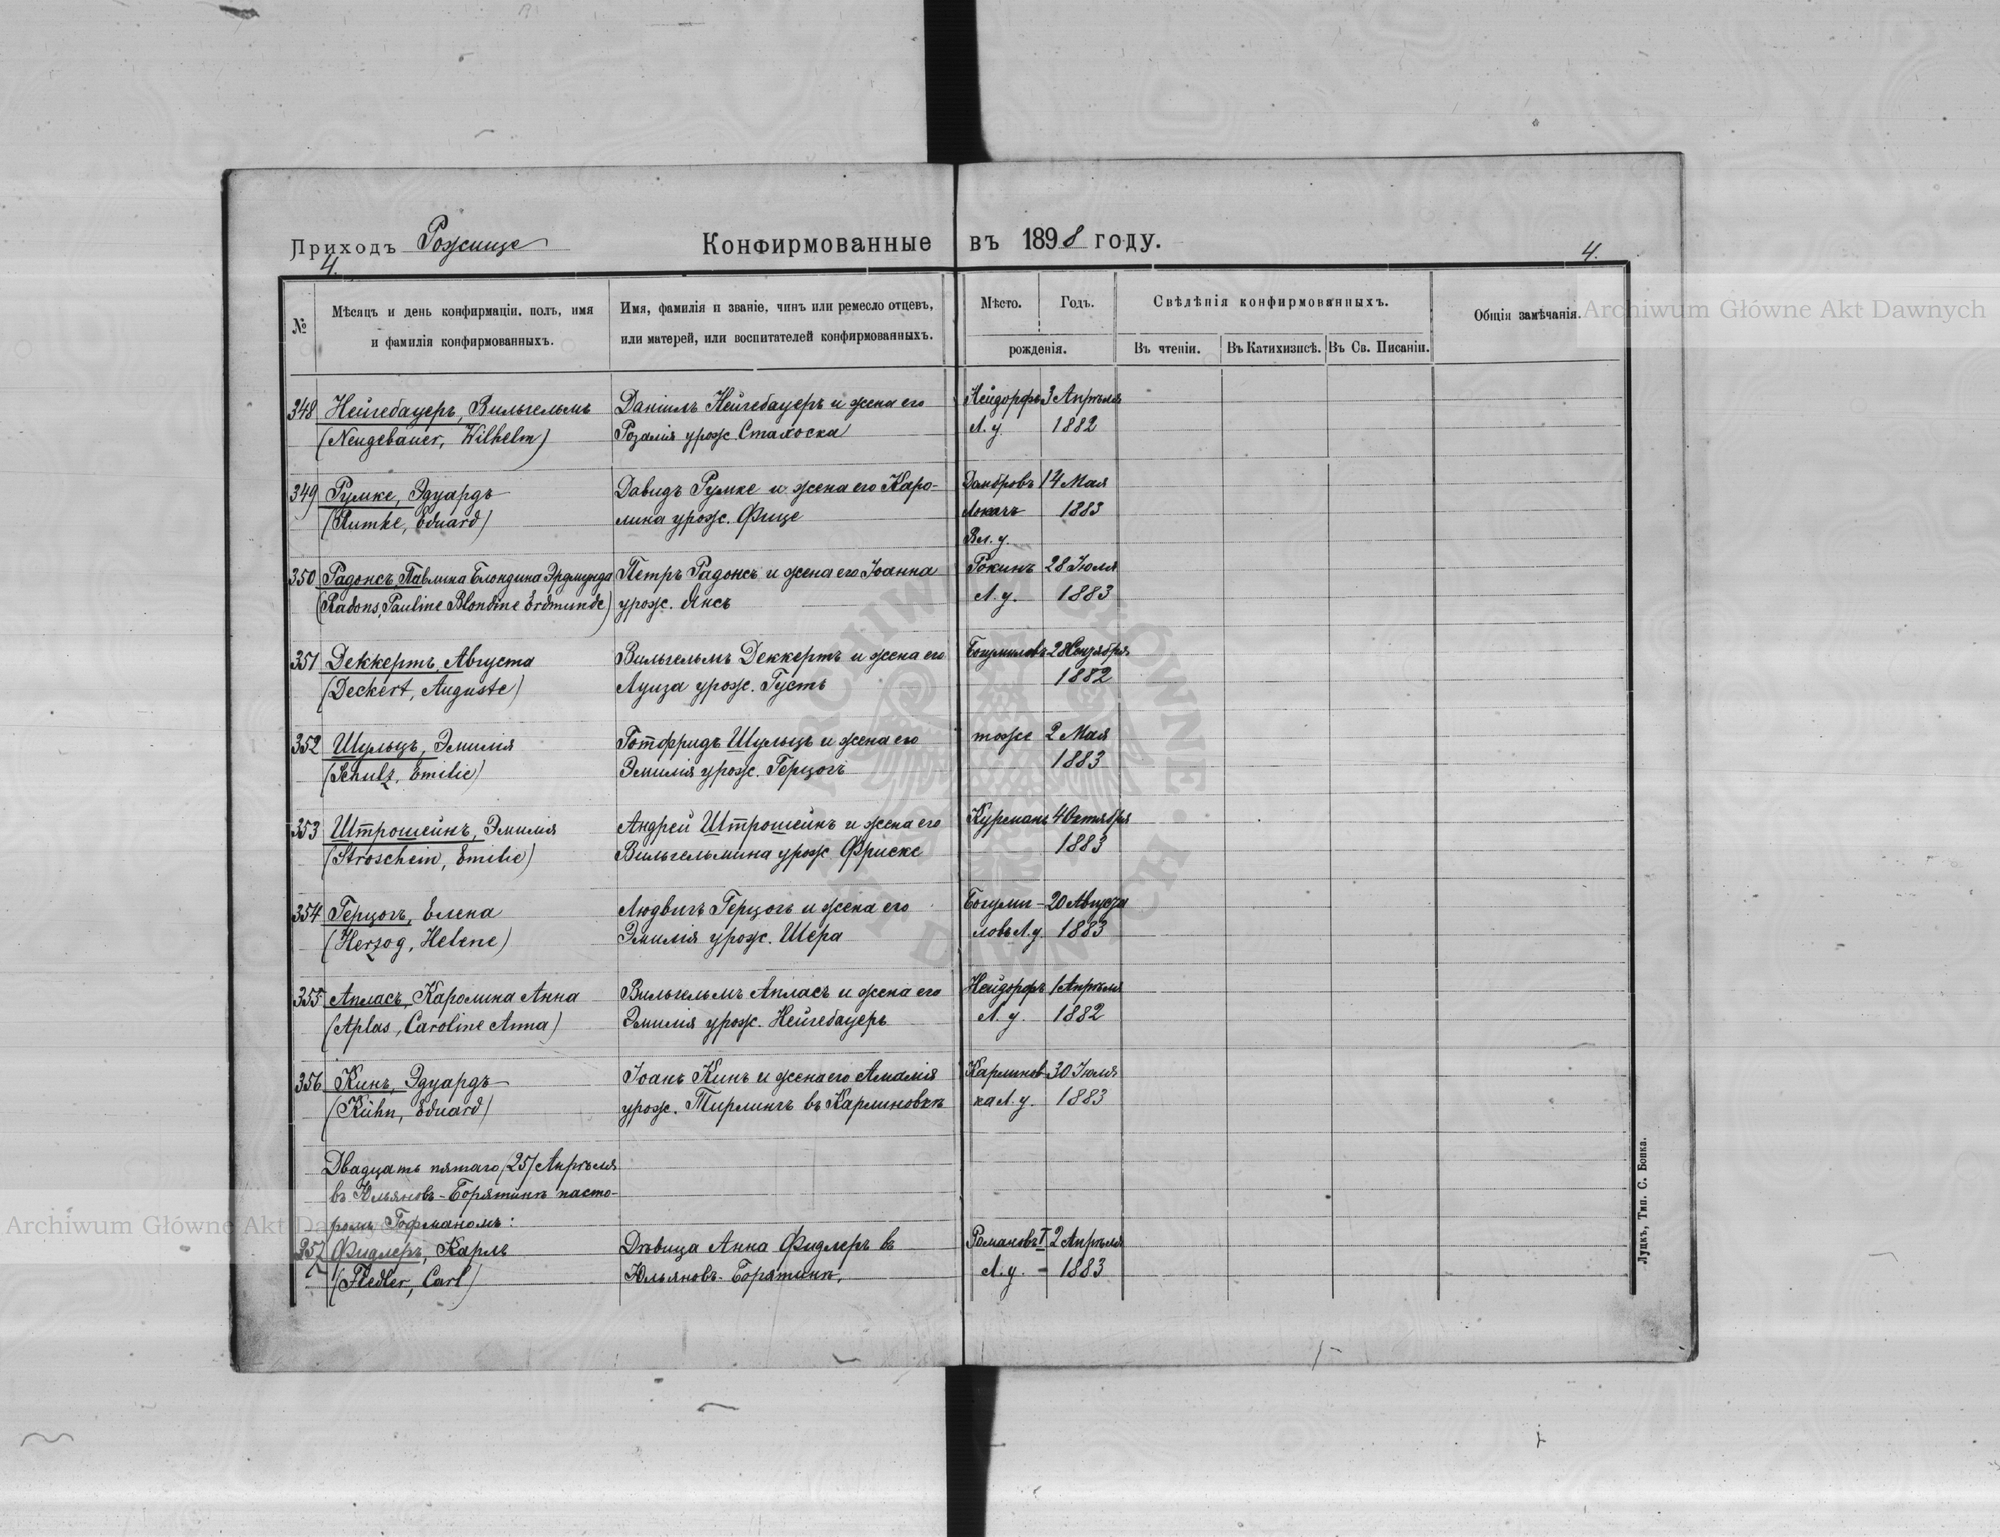 Приходъ Рожище Конфирмованные въ 1898 году.
4. 4.
№ Мѣсяцъ и день конфирмаціи, полъ, имя и фамилія конфирмованныхъ. Имя, фамилія и званіе, чинъ или ремесло отцевъ, или матерей, или воспитателей конфирмованныхъ. Мѣсто. Годъ. рожденія. Свѣдѣнія конфирмованныхъ. Въ чтеніи. Въ Катихизисѣ. Въ Св. Писаніи. Общія замѣчанія.
348 Нейгебауеръ, Вильгельмъ Даніилъ Нейгебауеръ и жена его Нейдорфъ 3 Апрѣля
(Neugebauer, Wilhelm) Розалія урож. Стахоска Л. у. 1882
349 Румке, Эдуардъ Давидъ Румке и жена его Каро- Домбровъ 14 Мая
(Rumke, Eduard) лина урож. Фице Локачъ 1883
Вл. у.
350 Радонсъ, Павлина Блондина Эрдмунда Петръ Радонсъ и жена его Іоанна Рокинъ 28 Іюля
(Radons, Pauline Blondine Erdmunde) урож. Янсъ Л. у. 1883
351 Деккертъ, Августа Вильгельмъ Деккертъ и жена его Богумиловъ 28
(Deckert, Auguste) Луиза урож. Густъ 1882
352 Шульцъ, Эмилія Готфридъ Шульцъ и жена его тоже 2 Мая
(Schulz, Emilie) Эмилія урож. Герцогъ 1883
353 Штрошейнъ, Эмилія Андрей Штрошейнъ и жена его Курманъ 4 Октября
(Stroschein, Emilie) Вильгельмина урож. Фриске 1883
354 Герцогъ, Елена Людвигъ Герцогъ и жена его Богуми- 20 Августа
(Herzog, Helene) Эмилія урож. Шера ловъ Л. у. 1883
355 Апласъ, Каролина Анна Вильгельмъ Апласъ и жена его Нейдорфъ 1 Апрѣля
(Aplas, Caroline Anna) Эмилія урож. Нейгебауеръ Л. у. 1882
356 Кинъ, Эдуардъ Іоанъ Кинъ и жена его Амалія Карлинов- 30 Іюля
(Kühn, Eduard) урож. Тирлингъ въ Карлиновкѣ ка Л. у. 1883
Двадцать пятаго /25/ Апрѣля
въ Юльяновъ-Борятинѣ пасто-
ромъ Гофманомъ:
357 Фидлеръ, Карлъ Дѣвица Анна Фидлеръ въ Романовъ I 2 Апрѣля
(Fiedler, Carl) Юльяновъ-Борятинѣ, Л. у. - 1883
Луцкъ, Тип. С. Бонка.
Archiwum Główne Akt Dawnych
Archiwum Główne Akt Dawnych
ARCHIWUM GŁÓWNE AKT DAWNYCH